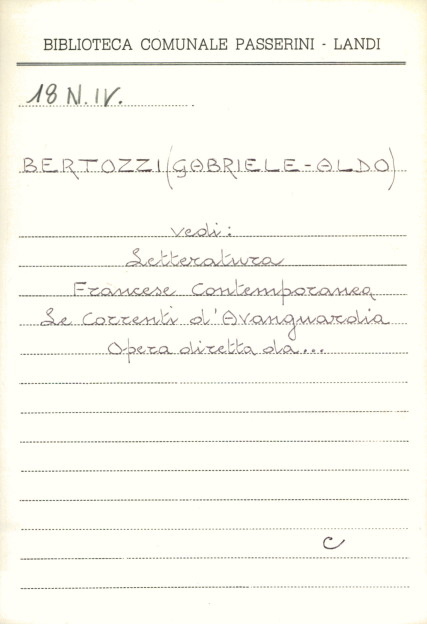 BIBLIOTECA COMUNALE PASSERINI - LANDI
18 N.IV.
BERTOZZI (GABRIELE-ALDO)
vedi:
Letteratura
Francese Contemporanea
Le Correnti d'Avanguardia
Opera diretta da...
C